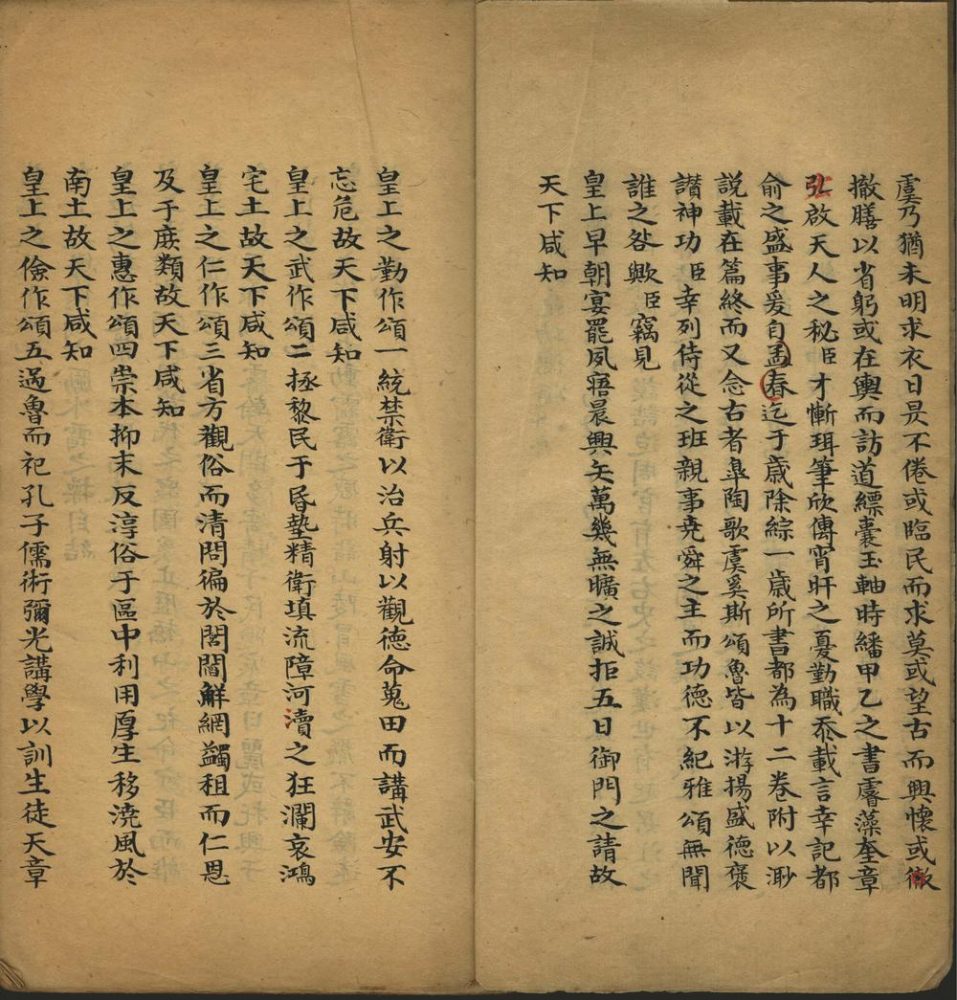 虞乃猶未明求衣日昃不倦或臨民而求莫或望古而興懷或徹
撤膳以省躬或在輿而訪道縹囊玉軸時繙甲乙之書睿藻奎章
弘啟天人之秘臣才慚珥筆欣傳宵旰之憂勤職忝載言幸記都
俞之盛事爰自孟春迄于歲除綜一歲所書都為十二卷附以渺
說載在篇終而又念古者臯陶歌虞奚斯頌魯皆以游揚盛德褒
讃神功臣幸列侍從之班親事堯舜之主而功德不紀雅頌無聞
誰之咎歟臣竊見
皇上早朝宴罷夙寤晨興矢萬幾無曠之誠拒五日御門之請故
天下咸知
皇上之勤作頌一統禁衛以治兵射以觀德命蒐田而講武安不
忘危故天下咸知
皇上之武作頌二拯黎民于昏墊精衛填流障河瀆之狂瀾哀鴻
宅土故天下咸知
皇上之仁作頌三省方觀俗而清問徧於閭閻解網蠲租而仁恩
及于庶類故天下咸知
皇上之惠作頌四崇本抑末反淳俗于區中利用厚生移澆風於
南土故天下咸知
皇上之儉作頌五過魯而祀孔子儒術彌光講學以訓生徒天章